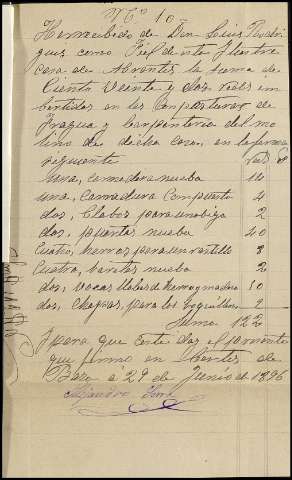 Nº 10
He recibido de Don Luis Rodri
guez como de esta Ilustre
casa de Abrantes la suma de
Ciento Veinte y dos reales im
bertidos en las Conposturas de
Fragua y Carpinteria del mo
lino de dicha Casa, en la forma
siguiente
una, cerradura nueba 14
una, Cerradura Compuesta 4
dos, Clabos para una biga 2
dos, puertas nueba 40
Cuatro, herros para un rastillo 8
Cuatro, baretas nueba 2
dos, vocas llabes de herro y madera 10
dos, Chapas, para los 2
Suma 122
I para que Conste doy el presente
que firmo en de
Baza á 29 de Junio de 1896
Alejandro